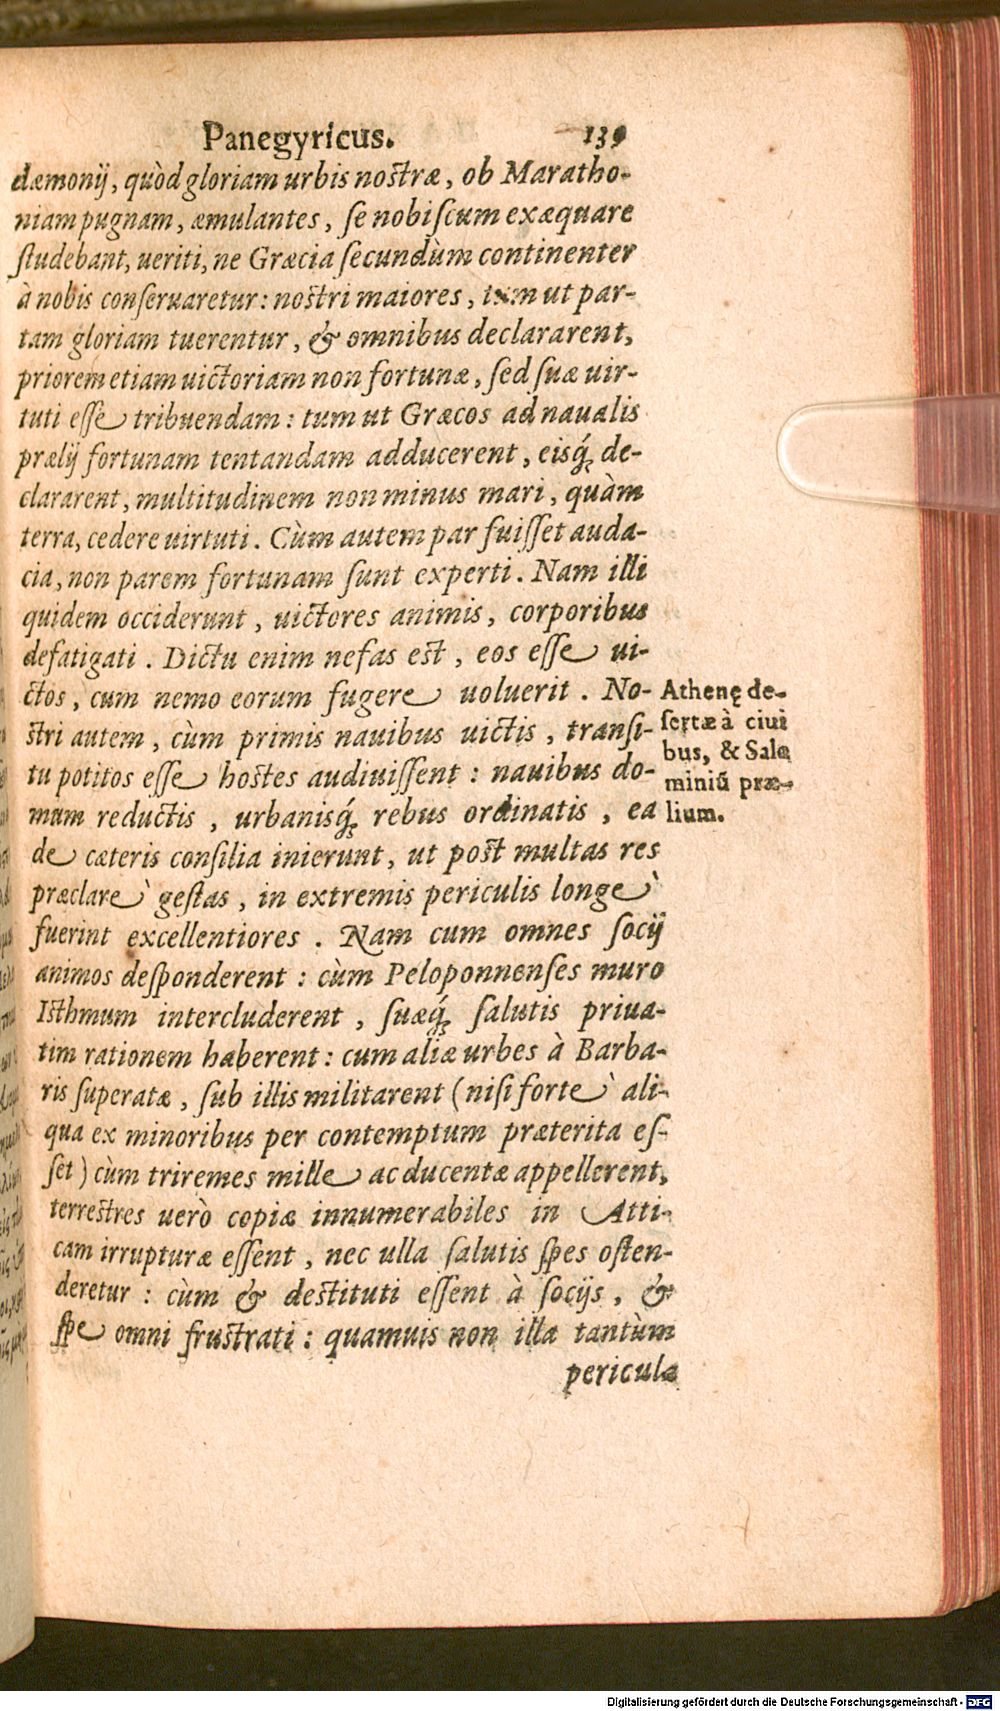 Panegyricus. 139
dæmonij, quòd gloriam urbis nostræ, ob Maratho-
niam pugnam, æmulantes, se nobiscum exæquare
studebant, ueriti, ne Græcia secundùm continenter
à nobis conseruaretur: nostri maiores, tum ut par-
tam gloriam tuerentur, & omnibus declararent,
priorem etiam uictoriam non fortunæ, sed suæ uir-
tuti esse tribuendam: tum ut Græcos ad naualis
prælij fortunam tentandam adducerent, eisq́; de-
clararent, multitudinem non minus mari, quàm
terra, cedere uirtuti. Cùm autem par fuisset auda-
cia, non parem fortunam sunt experti. Nam illi
quidem occiderunt, uictores animis, corporibus
defatigati. Dictu enim nefas est, eos esse ui-
ctos, cum nemo eorum fugere uoluerit. No-
stri autem, cùm primis nauibus uictis, transi-
tu potitos esse hostes audiuissent: nauibus do-
mum reductis, urbanisq́; rebus ordinatis, ea
de cæteris consilia inierunt, ut post multas res
præclarè gestas, in extremis periculis longè
fuerint excellentiores. Nam cum omnes socij
animos desponderent: cùm Peloponnenses muro
Isthmum intercluderent, suæq́; salutis priua-
tim rationem haberent: cum aliæ urbes à Barba-
ris superatæ, sub illis militarent (nisi fortè ali-
qua ex minoribus per contemptum præterita es-
set) cùm triremes mille ac ducentæ appellerent,
terrestres uerò copiæ innumerabiles in Atti-
cam irrupturæ essent, nec ulla salutis spes osten-
deretur: cùm & destituti essent à socijs, &
spe omni frustrati: quamuis non illa tantùm
pericula
Athenę de-
sertæ à ciui
bus, & Sala
miniū præ-
lium.
Digitalisierung gefördert durch die Deutsche Forschungsgemeinschaft - DFG